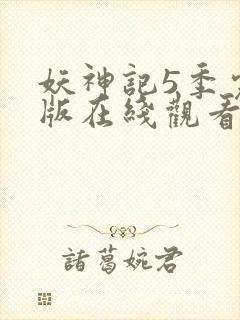 妖神記5季
版在綫觀看
諸葛婉君